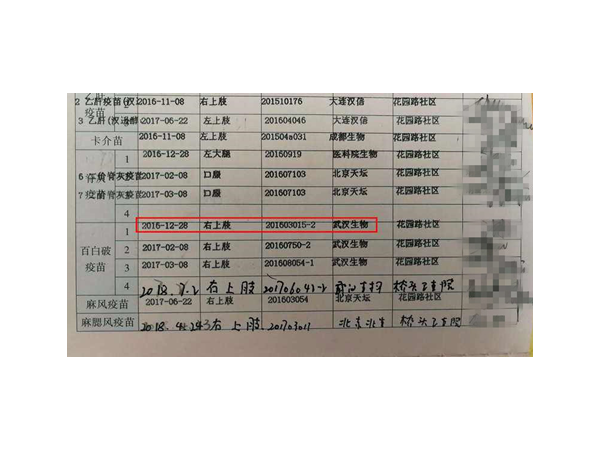 2 乙肝疫苗(汉 2016-11-08 右上肢 201510176 大连汉信 花园路社区
3 乙肝(汉逊酵 2017-06-22 左上肢 201604046 大连汉信 花园路社区
卡介苗 2016-11-08 左上肢 201504a031 成都生物 花园路社区
1 2016-12-28 左大腿 20160919 医科院生物 花园路社区
6 脊灰疫苗 2017-02-08 口服 201607103 北京天坛 花园路社区
7 脊灰疫苗 2017-03-08 口服 201607103 北京天坛 花园路社区
4
1 2016-12-28 右上肢 201603015-2 武汉生物 花园路社区
百白破疫苗 2 2017-02-08 右上肢 20160750-2 武汉生物 花园路社区
3 2017-03-08 右上肢 201608054-1 武汉生物 花园路社区
4 2018. 右上肢 桥头
麻风疫苗 2017-06-22 右上肢 201603054 北京天坛 花园路社区
麻腮风疫苗 2018. 右上肢 桥头